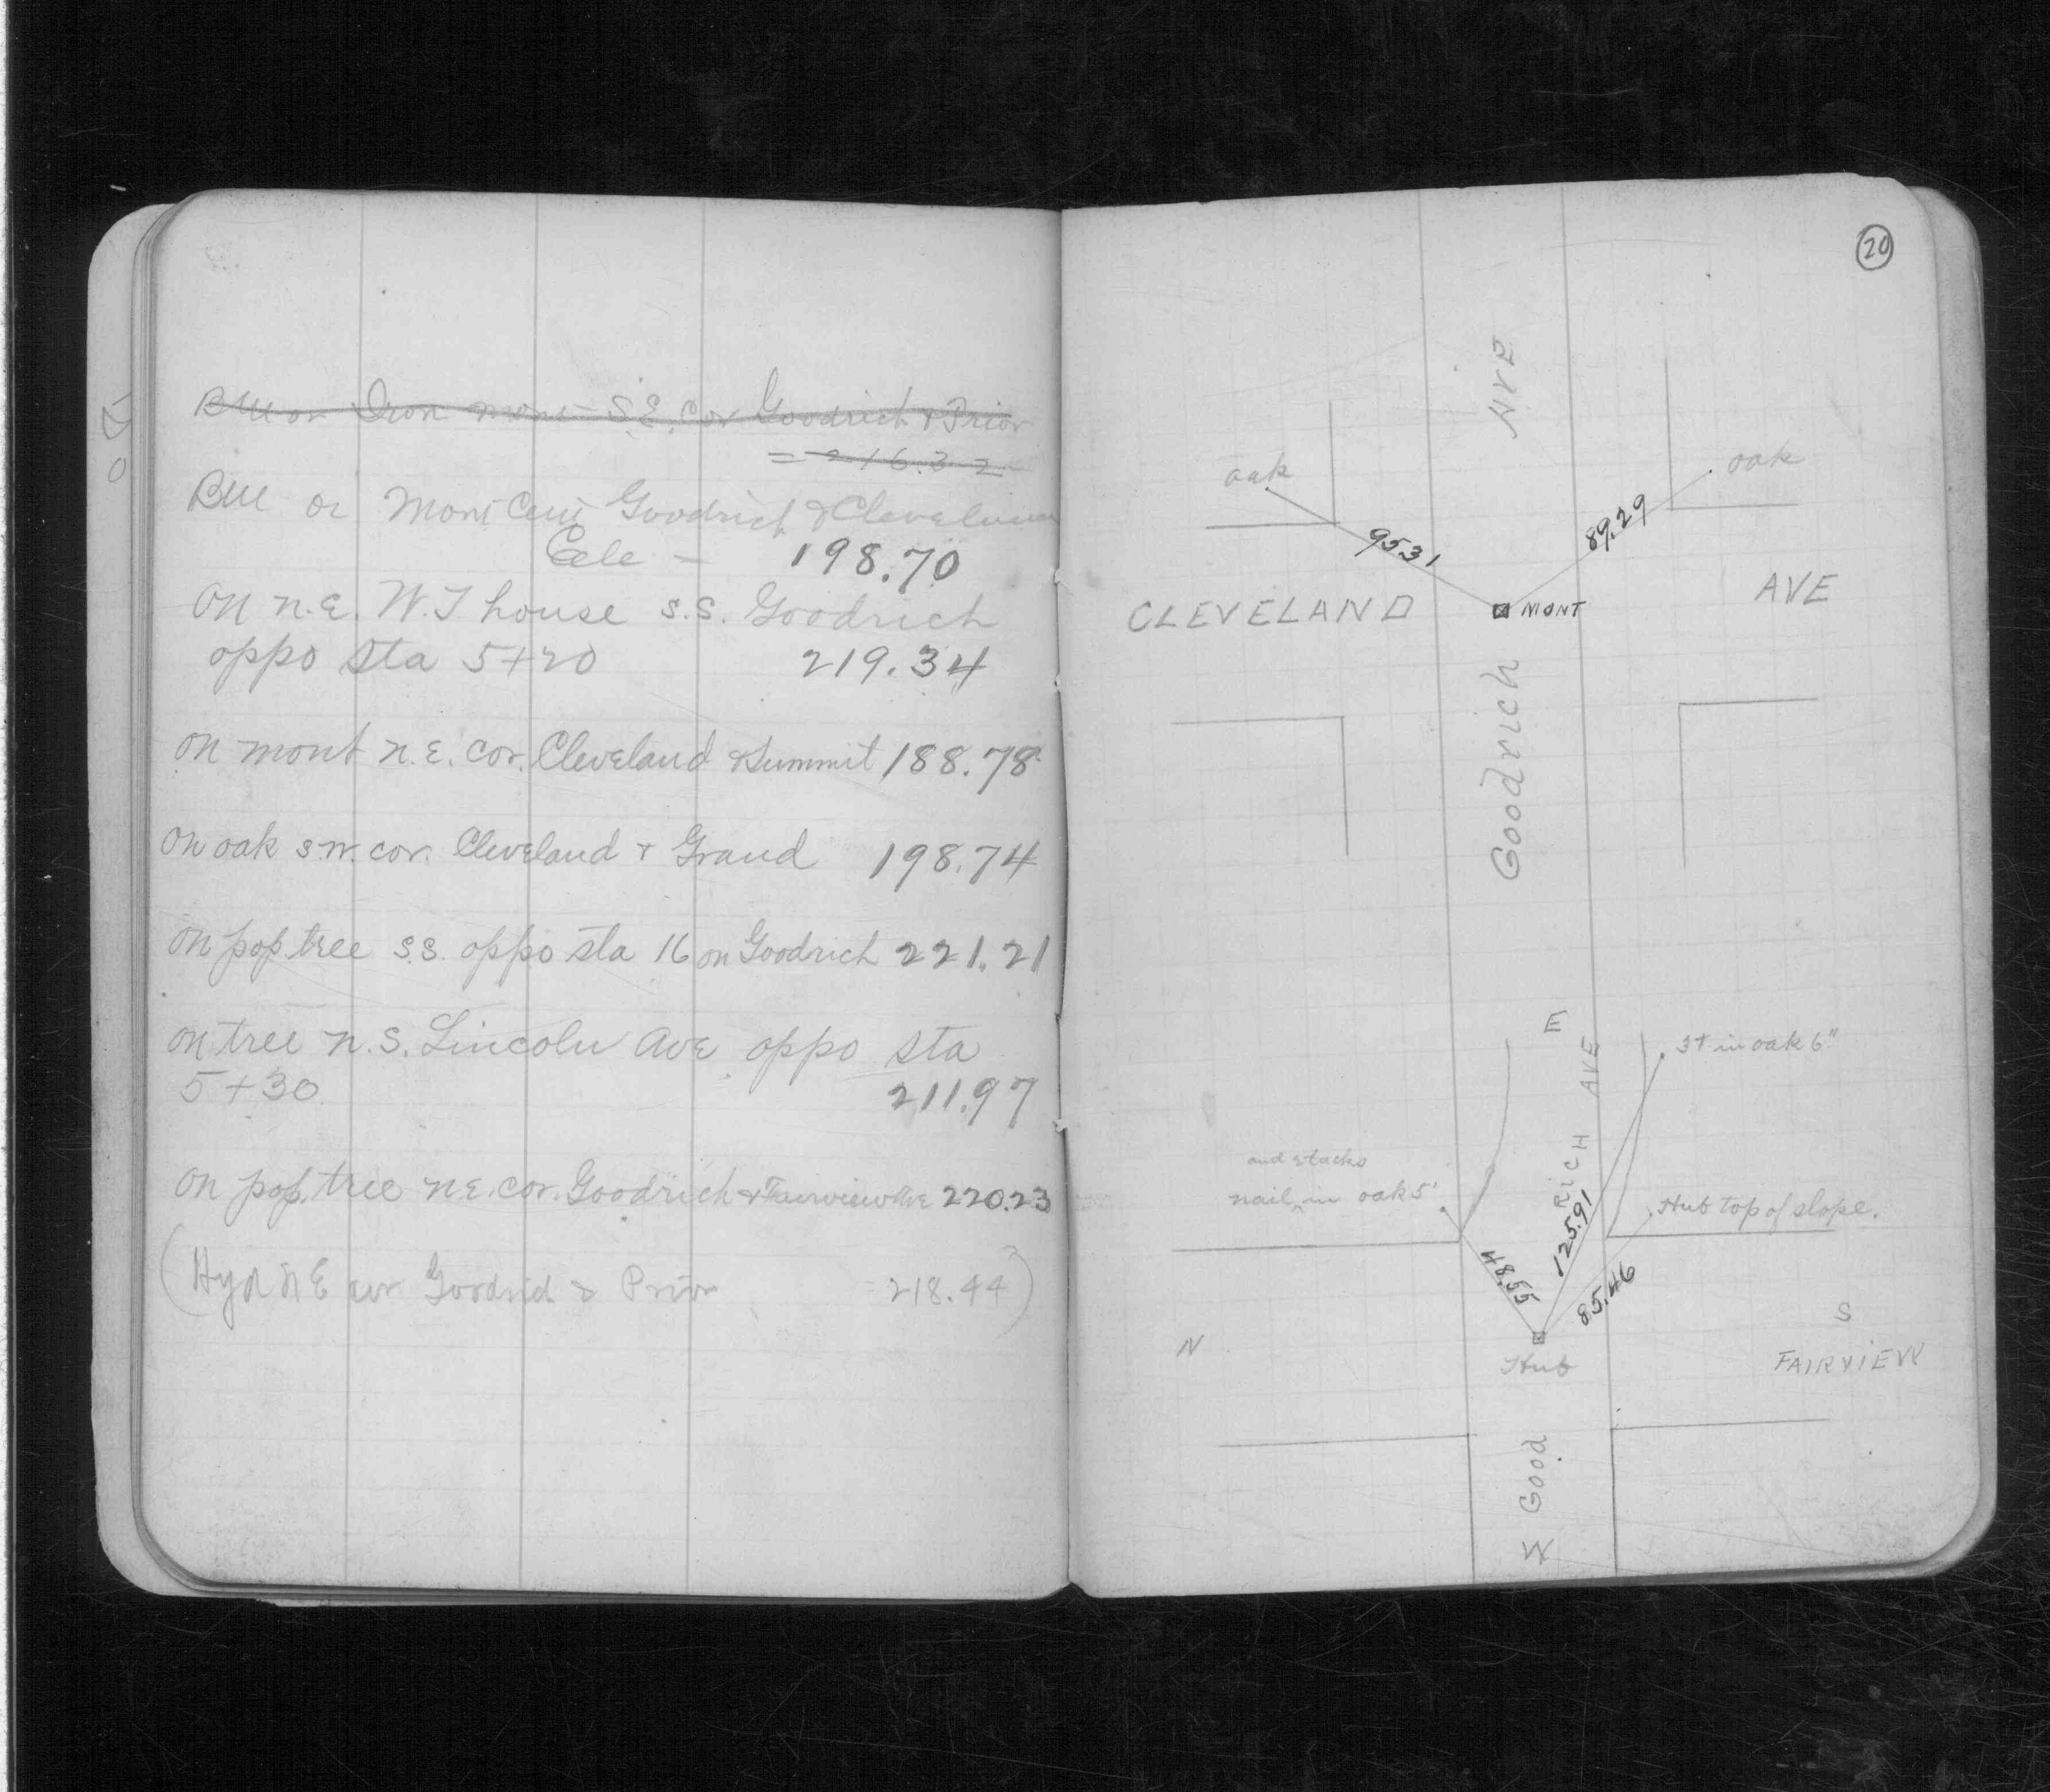 BM on Iron mont S.E. Cor Goodrich & Prior
= 216.32
BM on Mont Cent Goodrich & Cleveland
Ele - 198.70
On n.e. W.T house s.s. Goodrich
oppo sta 5+20 219.34
On mont n.e. cor. Cleveland & Summit 188.78
On oak s.w. cor. Cleveland & Grand 198.74
On pop. tree s.s. oppo sta 16 on Goodrich 221.21
On tree n.s. Lincoln Ave oppo sta
5+30 211.97
On pop. tree n.e. cor. Goodrich & Fairview Ave 220.23
(Hyd N E cor Goodrich & Prior = 218.44)
20
AVE
oak
oak
95.31
89.29
CLEVELAND
MONT
AVE
Goodrich
E
AVE
3t in oak 6"
and 2 tacks
nail in oak 5'
RICH
125.91
Hub top of slope.
48.55
85.46
S
N
Hub
FAIRVIEW
Good
W